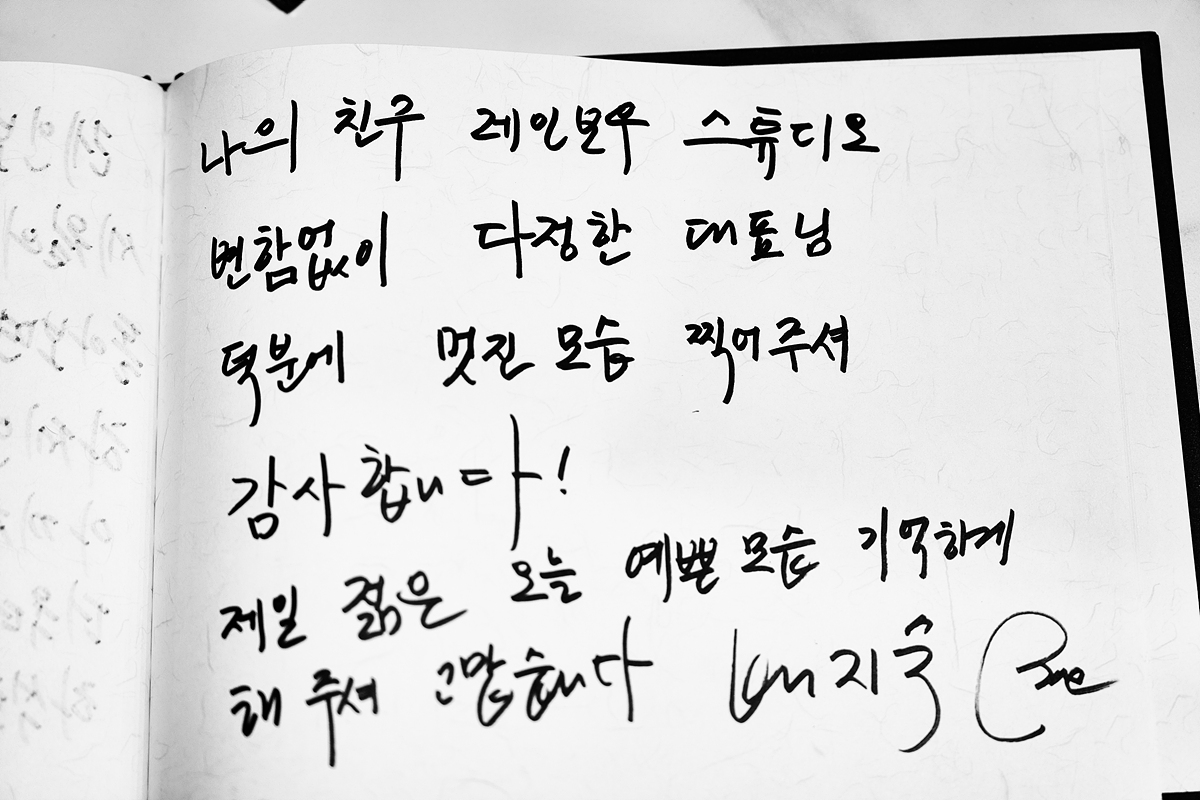 나의 친구 레인보우 스튜디오
변함없이 다정한 대표님
덕분에 멋진 모습 찍어주셔
감사합니다!
제일 젊은 오늘 예쁜 모습 기억하게
해 주셔 고맙습니다